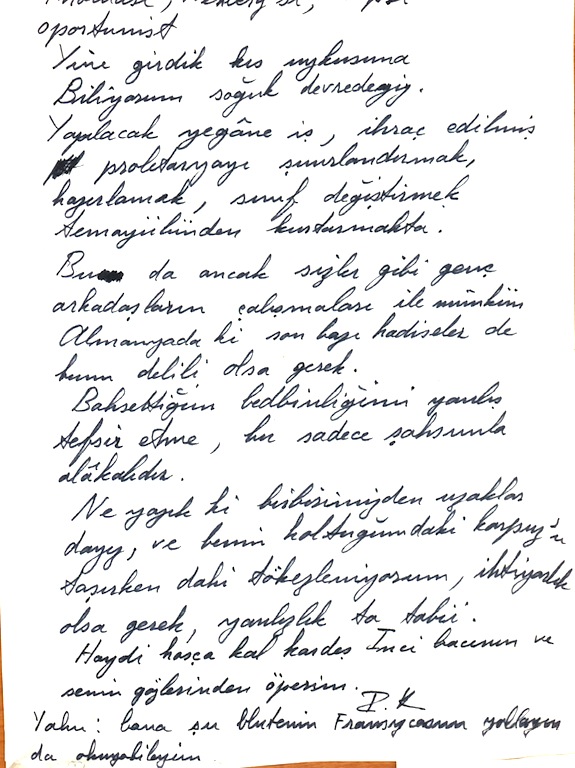 oportunist
Yine girdik kış uykusuna
Biliyorum soğuk devredeyiz.
Yapılacak yegâne iş, ihraç edilmiş
proletaryayı şuurlandırmak,
hazırlamak, sınıf değiştirmek
temayülünden kurtarmakta.
Bu da ancak sizler gibi genç
arkadaşların çalışmaları ile mümkün
Almanyada ki son bazı hadiseler de
bunun delili olsa gerek.
Bahsettiğim bedbinliğimi yanlış
tefsir etme, bu sadece şahsımla
alâkalıdır.
Ne yazık ki birbirimizden uzaklar
dayız, ve benim koltuğumdaki karpuz'u
taşırken dahi tökezleniyorum, ihtiyarlık
olsa gerek, yanlızlık ta tabii.
Haydi hoşça kal kardeş İnci bacının ve
senin gözlerinden öperim.
Yahu: bana şu Fransızcasını yollayın
da okuyabileyim